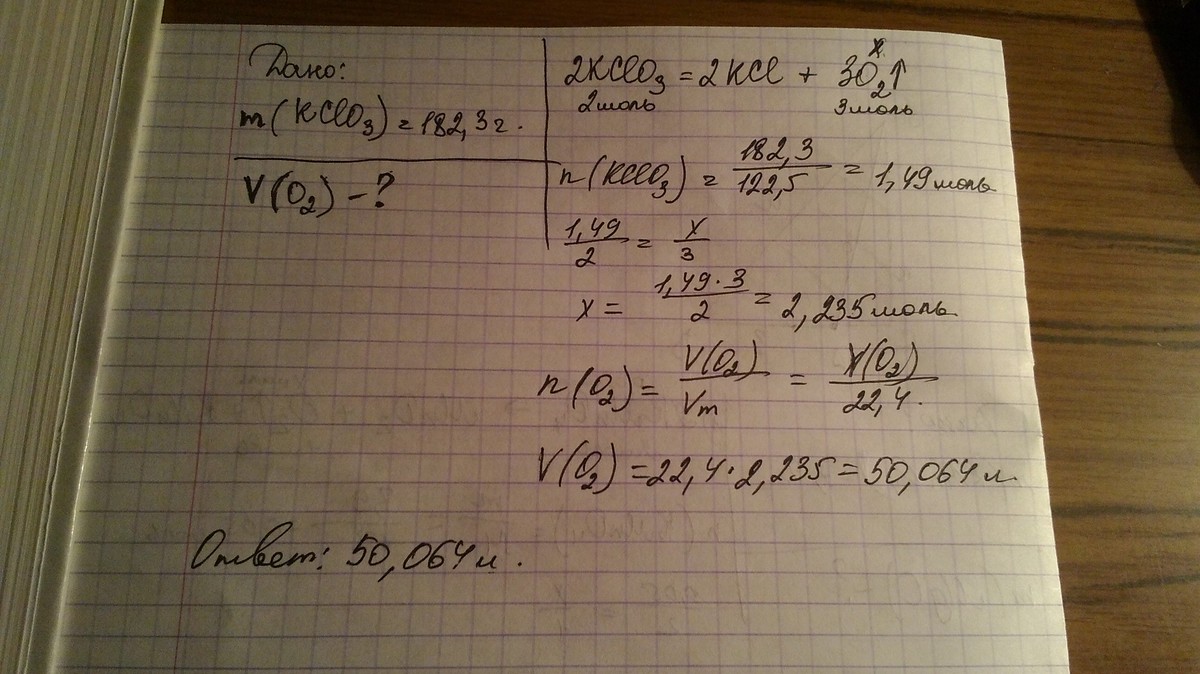 Дано:
m(KClO₃) = 182,3г.
V(O₂) - ?
x
2KClO₃ = 2KCl + 3O₂↑
2моль 3моль
n(KClO₃) = 182,3/122,5 = 1,49моль
1,49/2 = x/3
x = 1,49·3/2 = 2,235моль
n(O₂) = V(O₂)/Vm = V(O₂)/22,4.
V(O₂) = 22,4·2,235 = 50,064л.
Ответ: 50,064л.